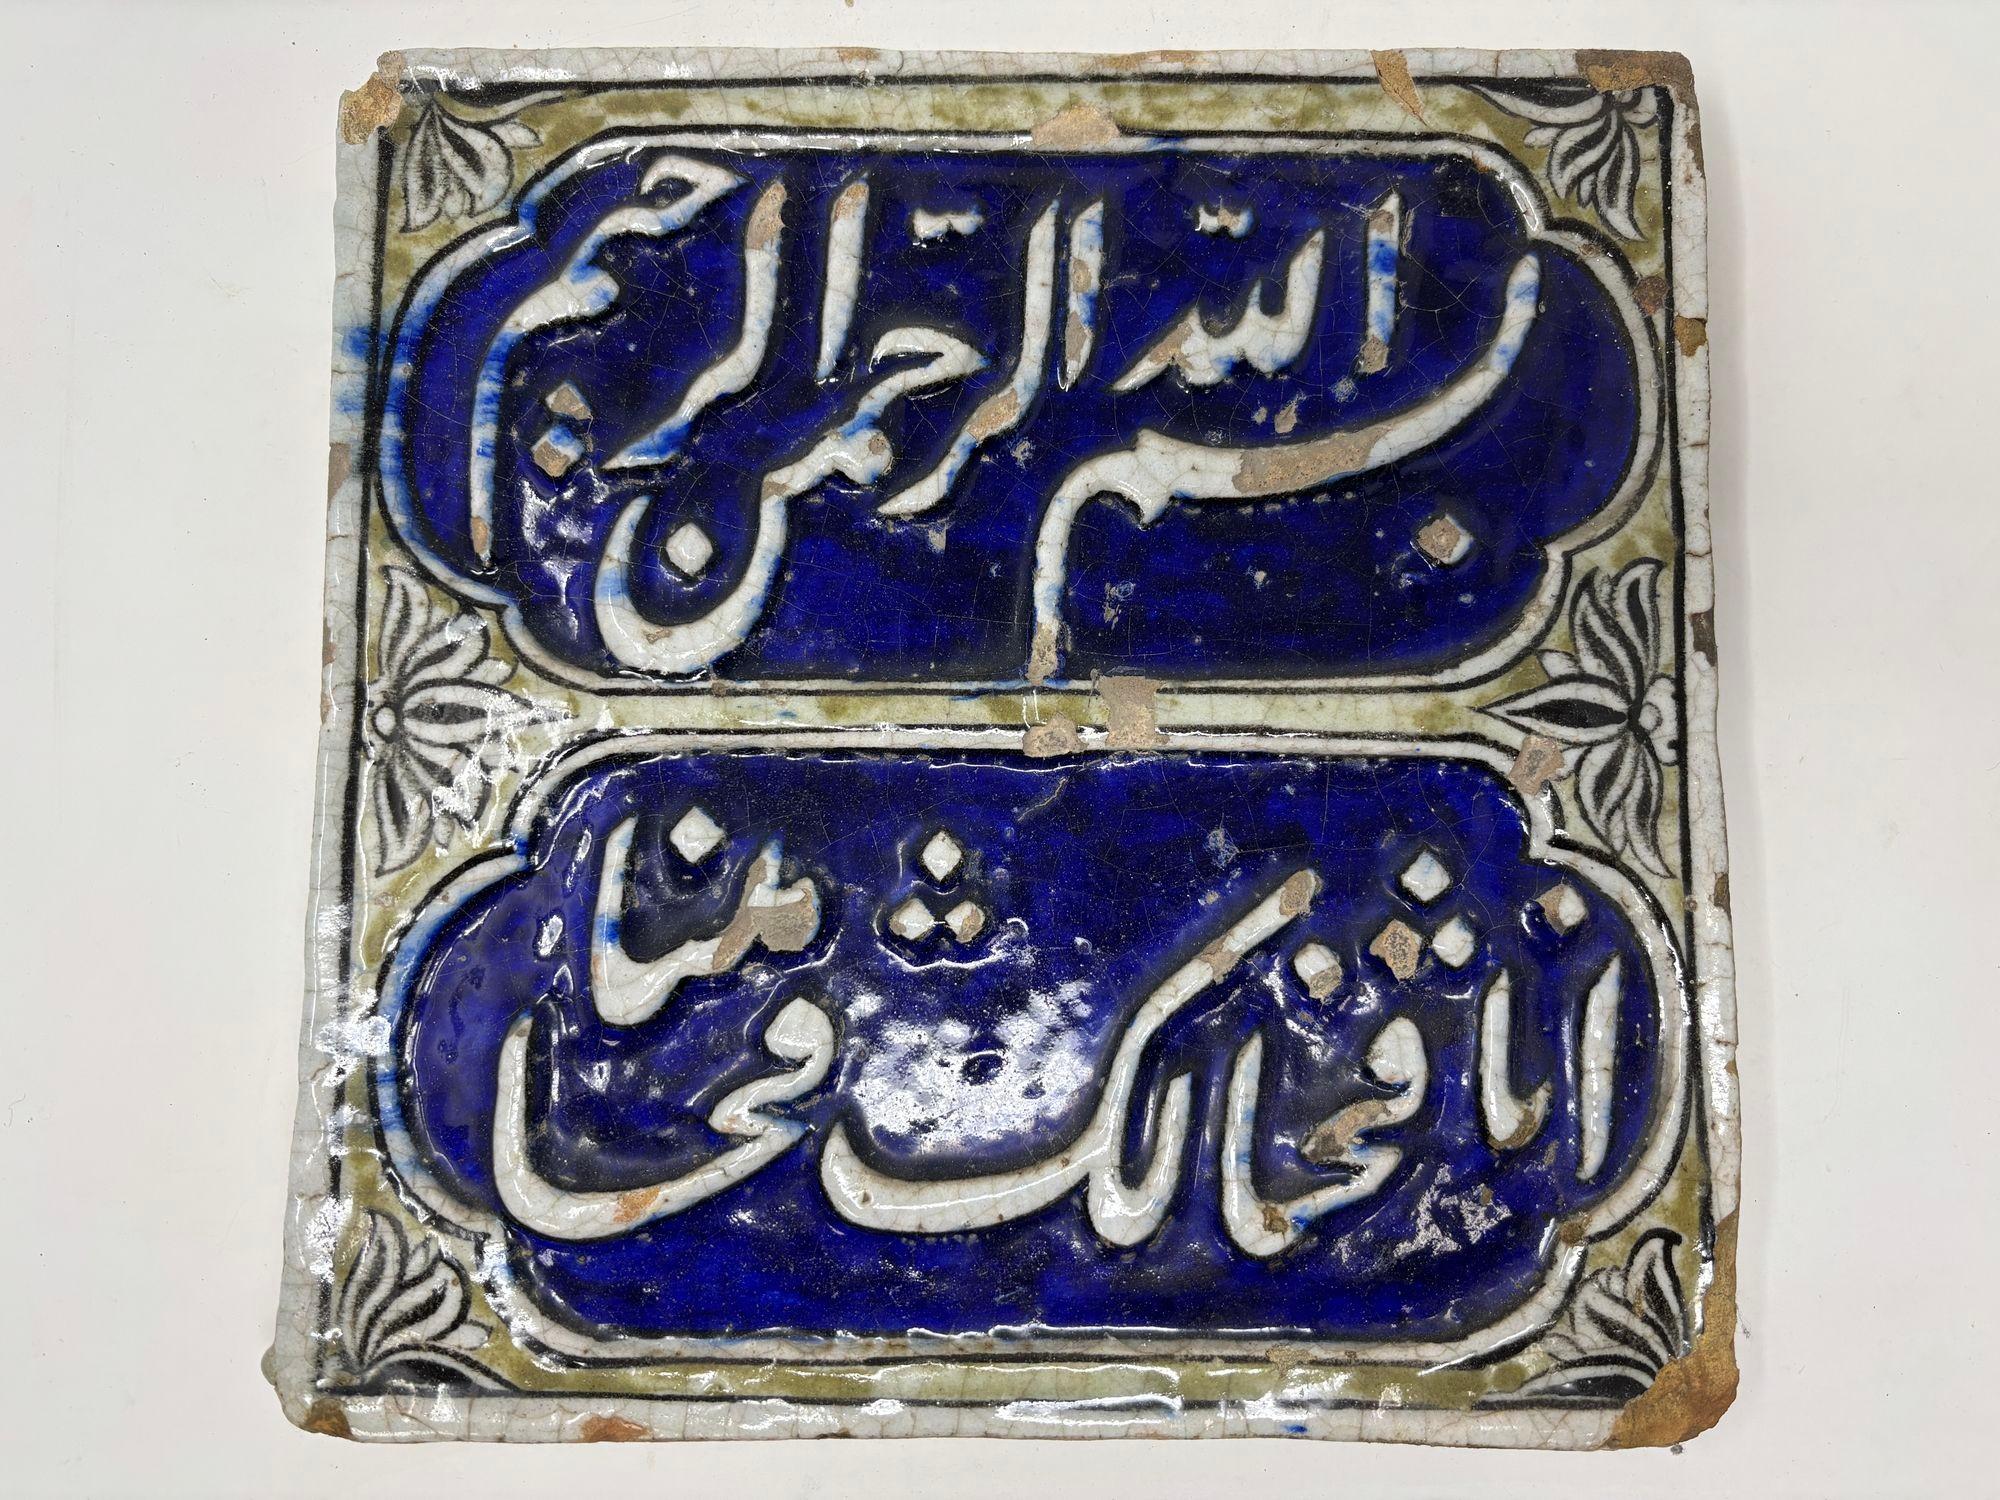 بسم الله الرّحمن الرحيم
انا فتحنا لك فتحا مبينا